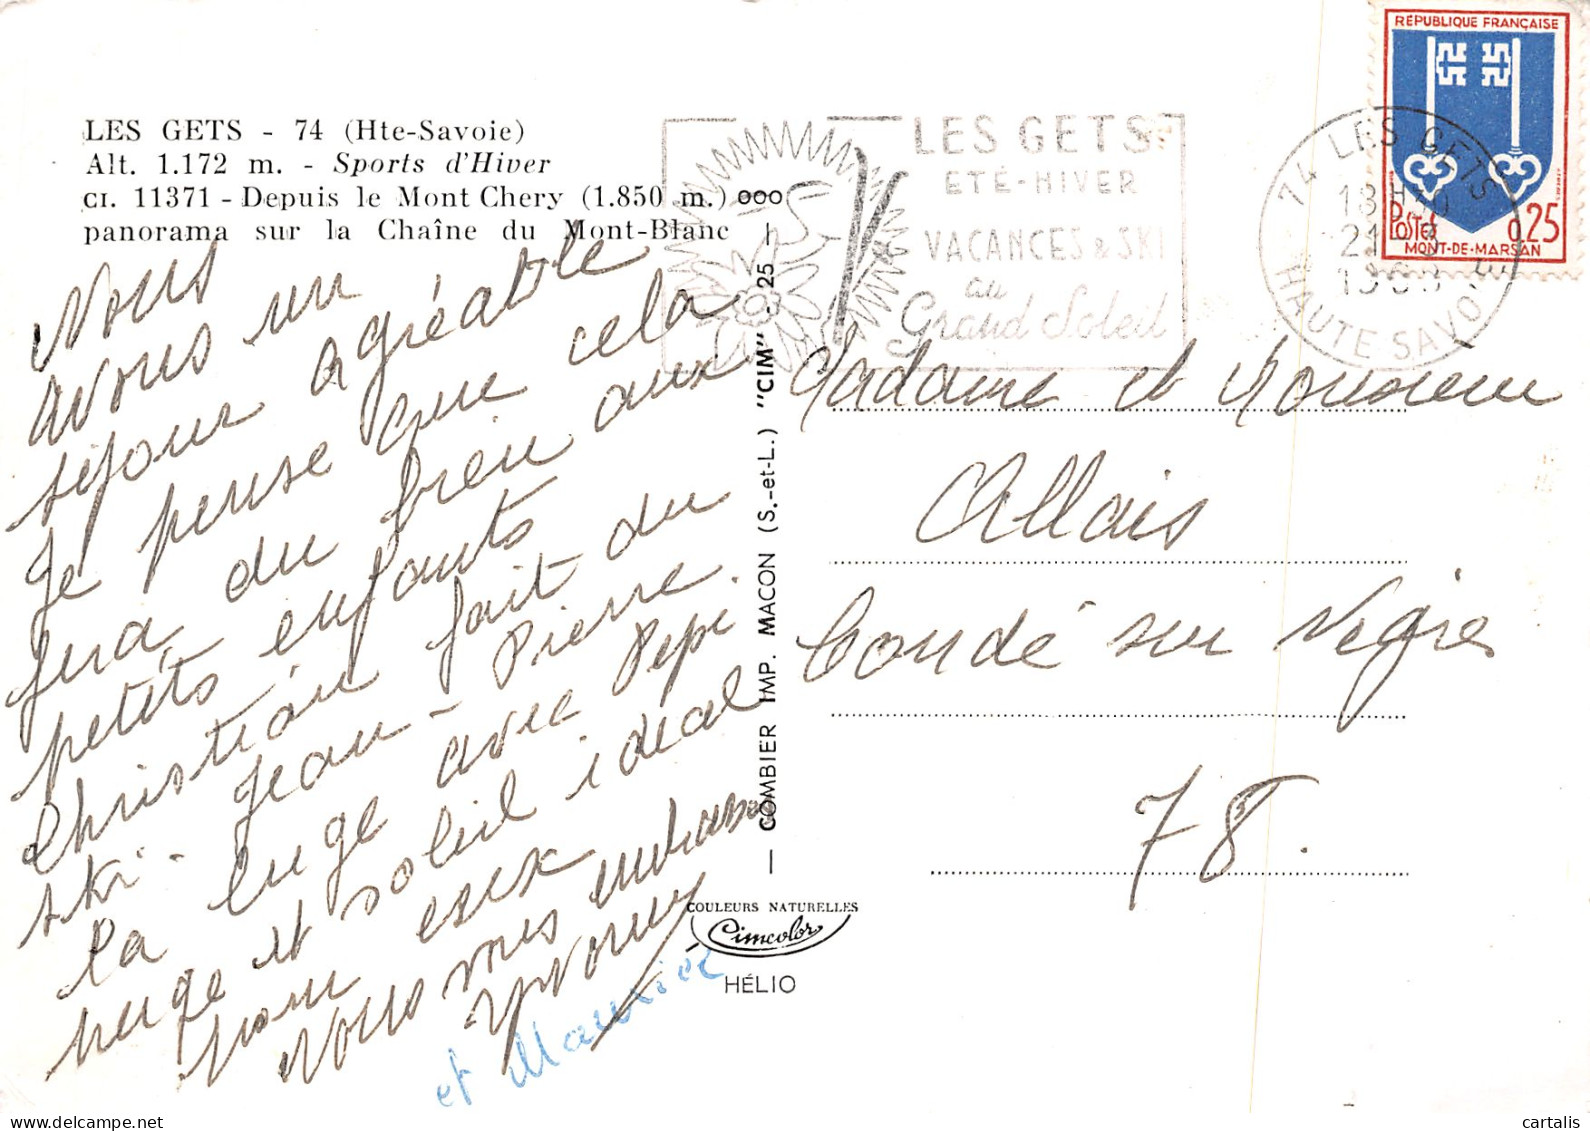 LES GETS - 74 (Hte-Savoie)
Alt. 1.172 m. - Sports d'Hiver
CI. 11371 - Depuis le Mont Chery (1.850 m.)
panorama sur la Chaîne du Mont-Blanc
Nous
avons un
séjour agréable
Je pense que cela
fera du bien aux
petits enfants
Christian fait du
ski - Jean-Pierre
la luge avec Pepe.
neige et soleil idéal
pour eux
Nous vous embrassons
Yvonne
et Maurice
— COMBIER IMP. MACON (S.-et-L.) "CIM" - 25 —
COULEURS NATURELLES
Cimcolor
HÉLIO
LES GETS
ETÉ-HIVER
VACANCES & SKI
au
Grand Soleil
74 LES GETS
18H30
HAUTE SAVOIE
RÉPUBLIQUE FRANÇAISE
POSTES
0,25
MONT-DE-MARSAN
Madame et Monsieur
Allais
Condé sur Vegre
78.
cartalis
delcampe.net